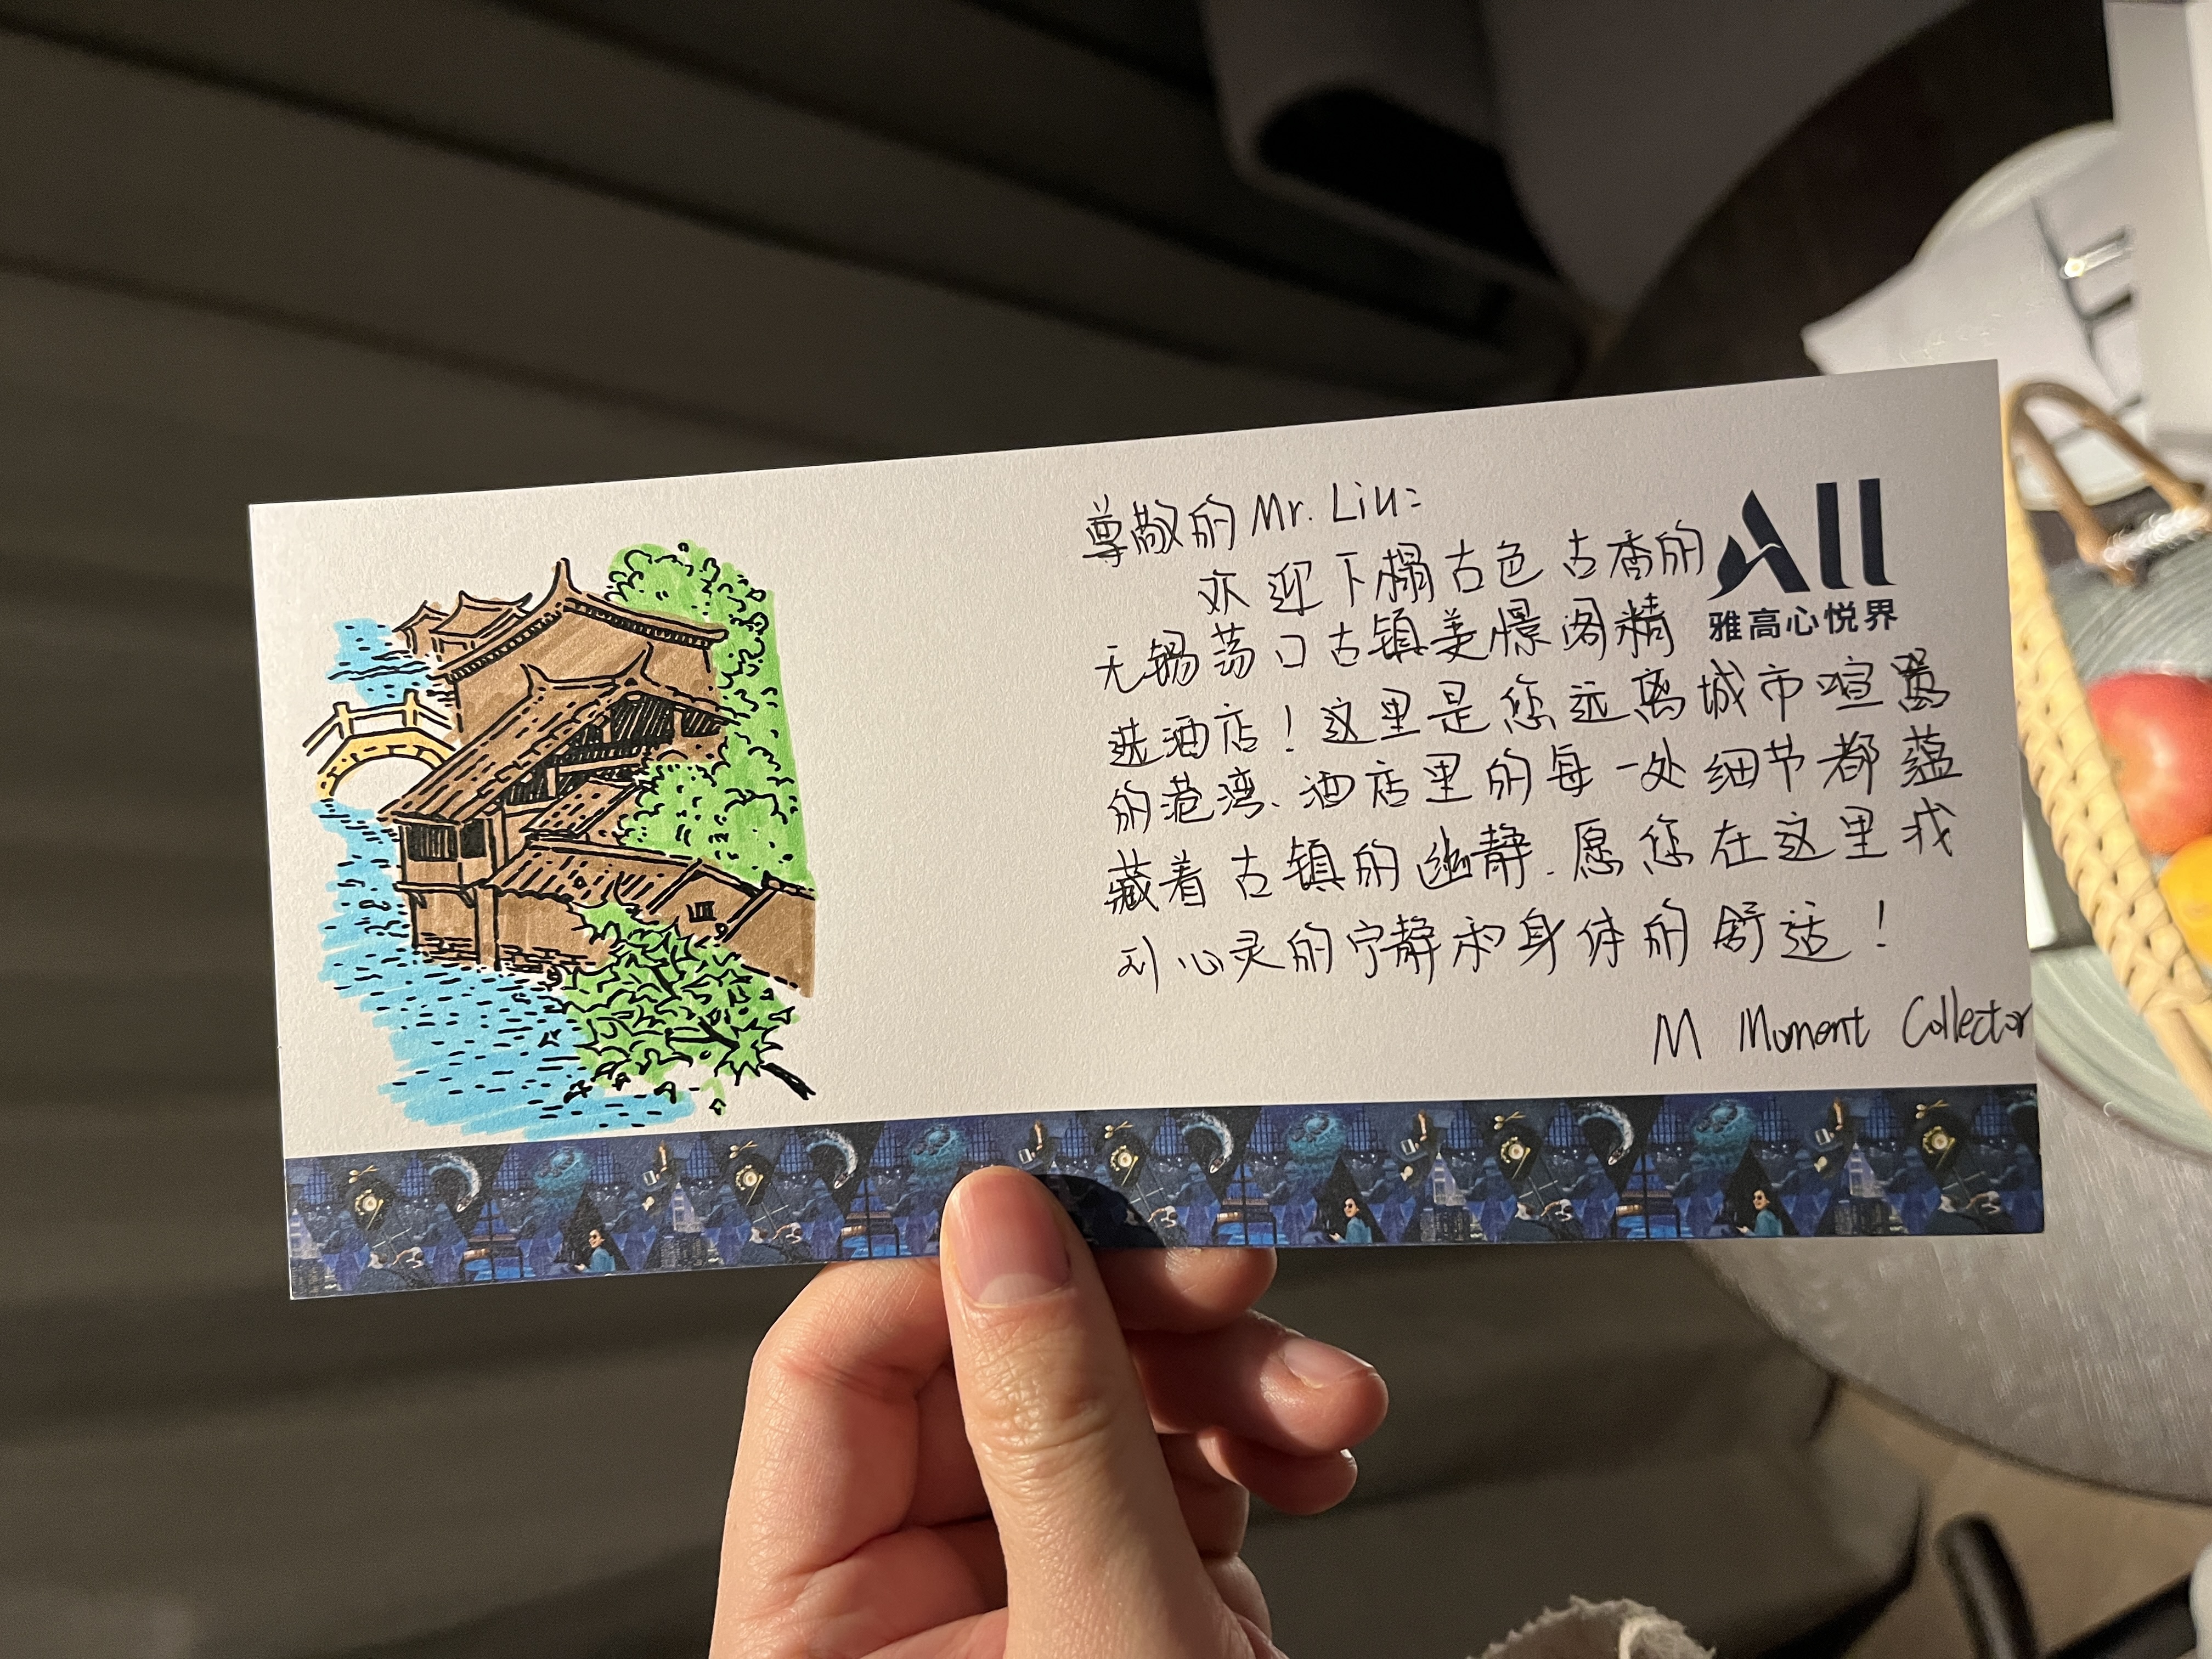 尊敬的 Mr. Liu:
欢迎下榻古色古香的
无锡荡口古镇美憬阁精
选酒店！这里是您远离城市喧嚣
的港湾.酒店里的每一处细节都蕴
藏着古镇的幽静.愿您在这里找
到心灵的宁静和身体的舒适！
M Moment Collector
All
雅高心悦界